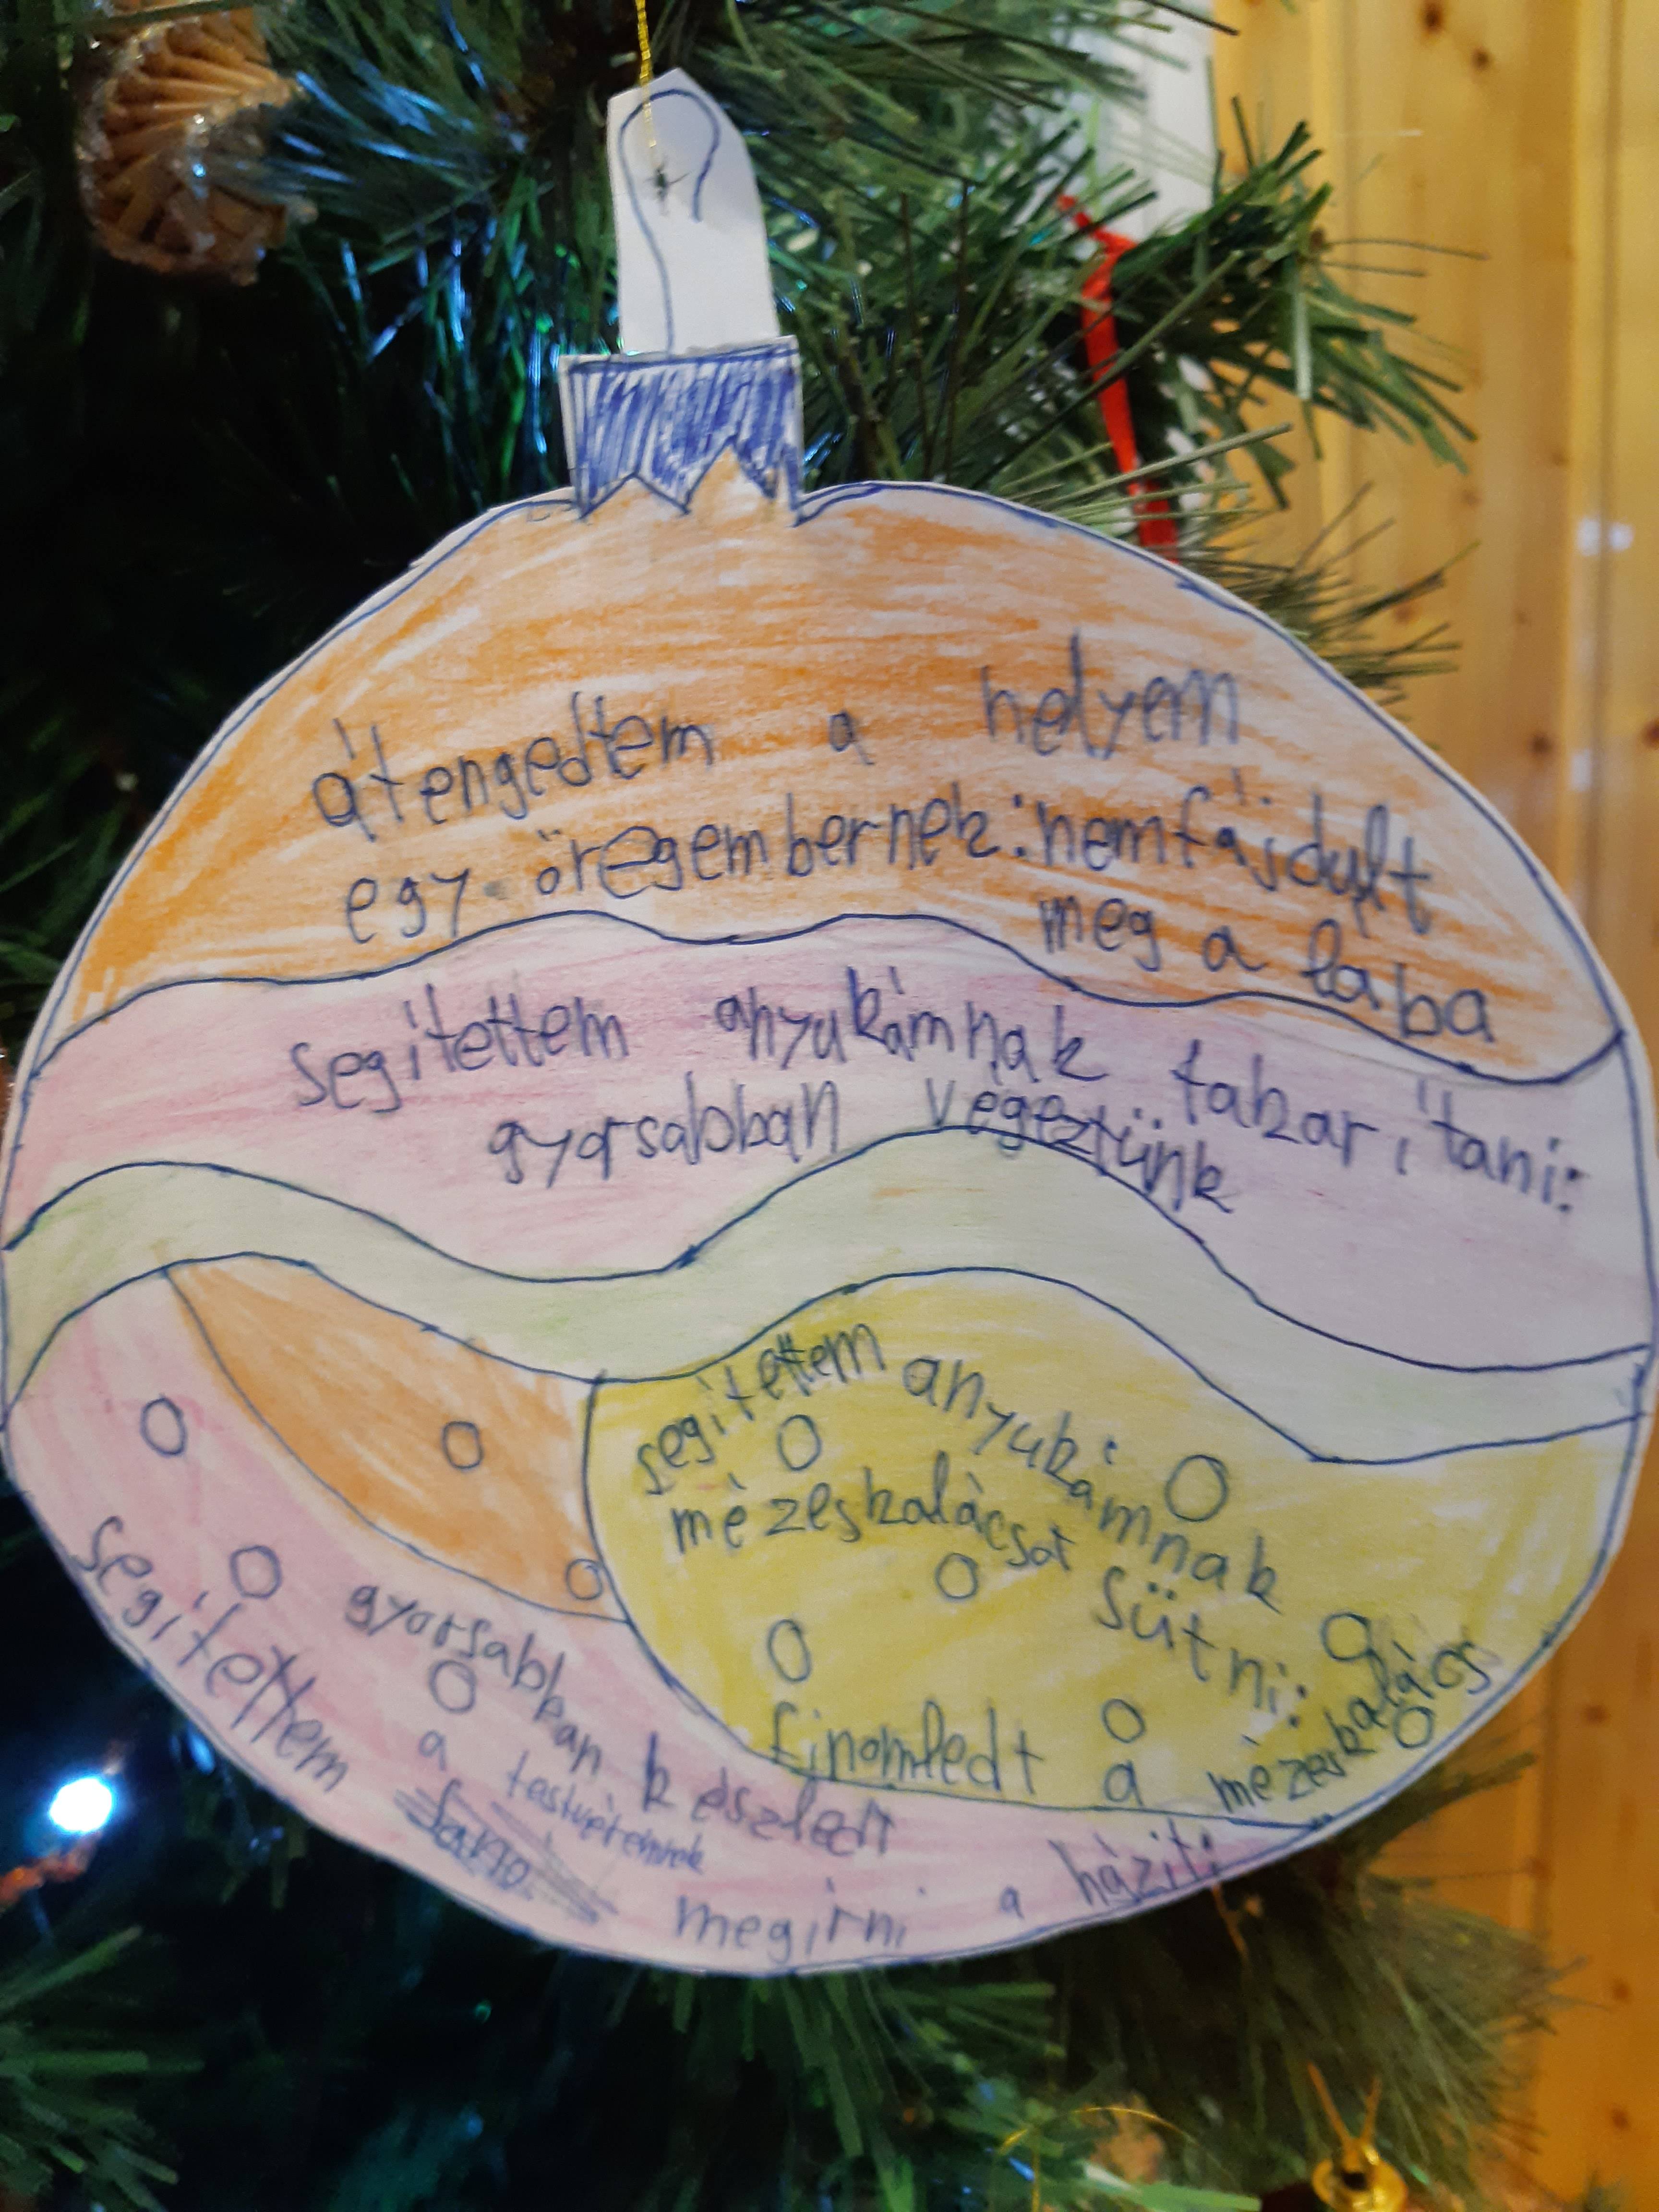 átengedtem a helyem
egy öregembernek: nem fájdult
meg a lába
segítettem anyukámnak takarítani:
gyorsabban végeztünk
segítettem anyukámnak
mézeskalácsot sütni:
finom ledt a mézeskalács
gyorsabban készledt
segítettem a testvéremnek
megírni a háziti